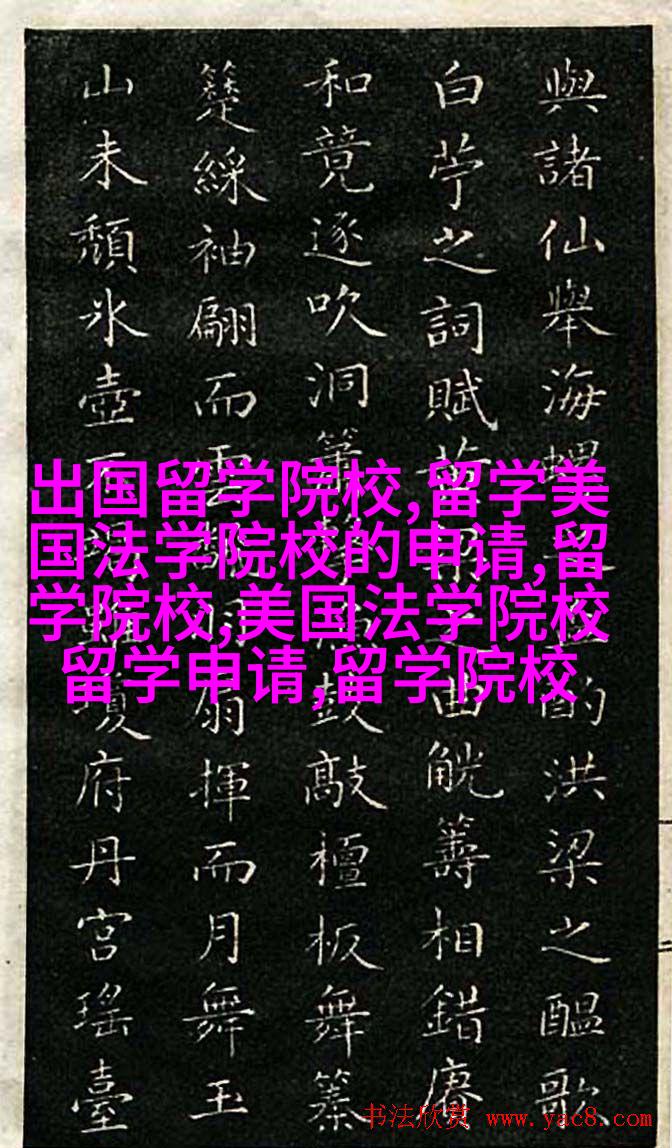 與諸仙舉海螺酌洪梁之醞歌
白苧之詞賦黃之曲觥籌相錯賡
和竟逐吹洞簫鼓敲檀板舞
綵袖翩而雲羽扇揮而月舞玉
山未頹氷壺瓊府丹宮瑤臺
出国留学院校,留学美
国法学院校的申请,留
学院校,美国法学院校
留学申请,留学院校
书法欣赏 www.yac8.com